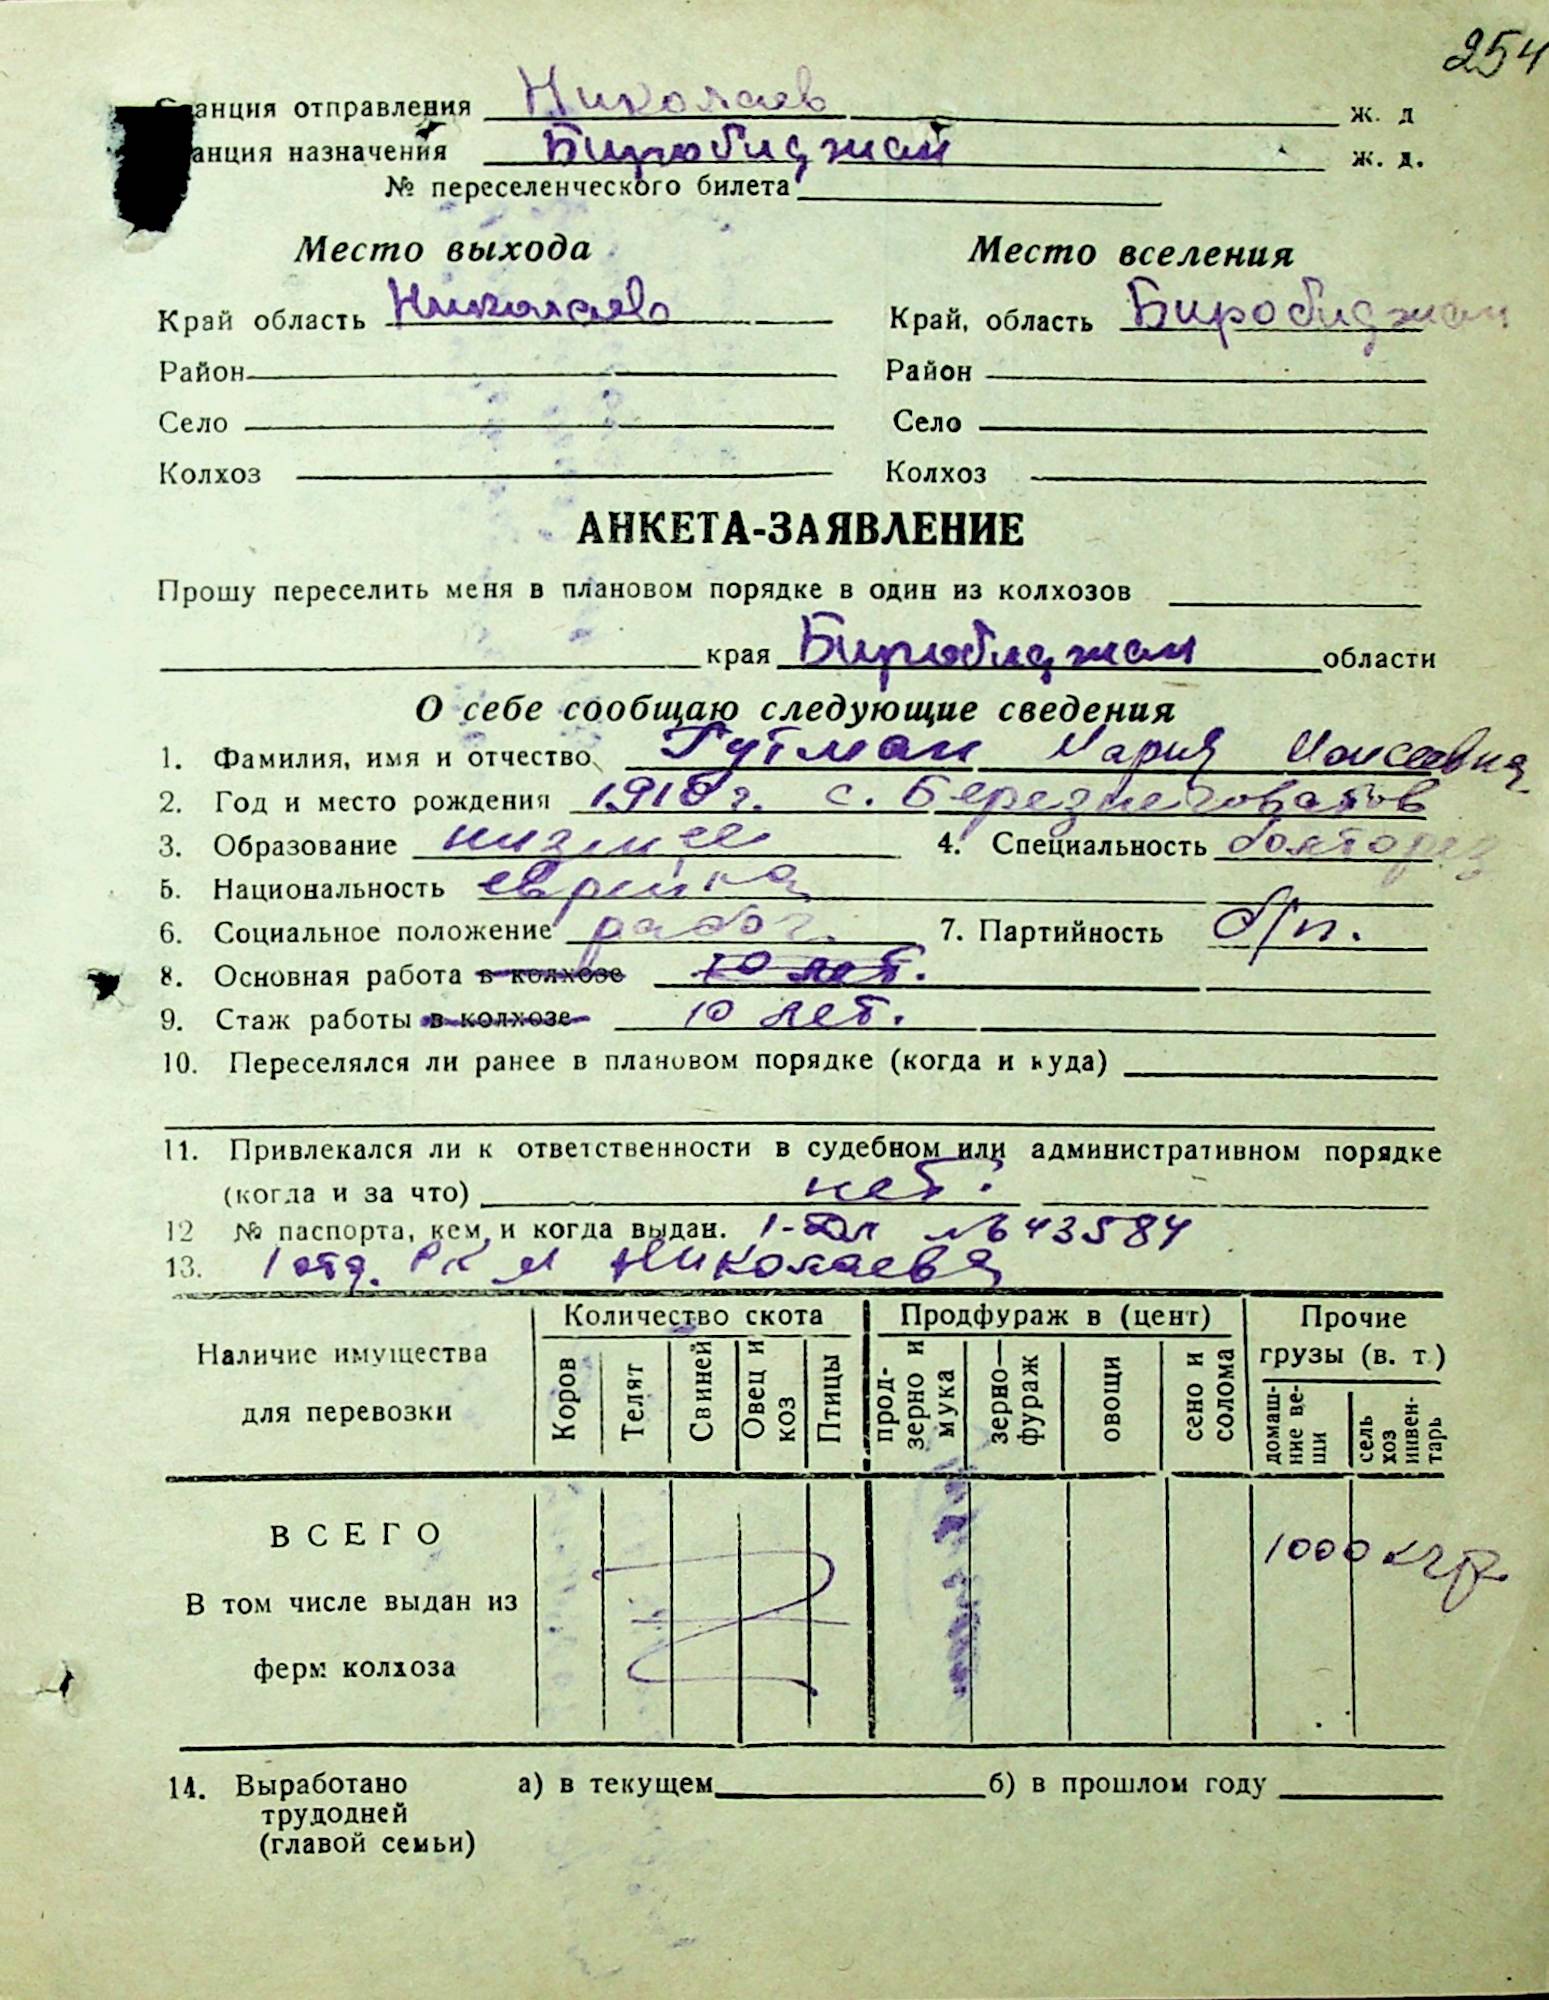 254
Станция отправления Николаев ж. д
анция назначения Биробиджан ж. д.
№ переселенческого билета
Место выхода Место вселения
Край область Николаев Край, область Биробиджан
Район Район
Село Село
Колхоз Колхоз
АНКЕТА-ЗАЯВЛЕНИЕ
Прошу переселить меня в плановом порядке в один из колхозов
края Биробиджан области
О себе сообщаю следующие сведения
1. Фамилия, имя и отчество Гутман Мария Моисеевна
2. Год и место рождения 1918 г. с. Березнеговатов
3. Образование низшее 4. Специальность болторез
5. Национальность еврейка
6. Социальное положение рабоч. 7. Партийность б/п.
8. Основная работа в колхозе 10 лет.
9. Стаж работы в колхозе 10 лет.
10. Переселялся ли ранее в плановом порядке (когда и куда)
11. Привлекался ли к ответственности в судебном или административном порядке
(когда и за что) нет.
12 № паспорта, кем и когда выдан. № 643584
13. 1 отд. РК М Николаева
Количество скота Продфураж в (цент) Прочие
Наличие имущества грузы (в. т.)
для перевозки Коров Телят Свиней Овец и коз Птицы прод-зерно и мука зерно—фураж овощи сено и солома домаш-ние ве-щи сель хоз инвен-тарь
ВСЕГО 1000 кгр.
В том числе выдан из
ферм колхоза
14. Выработано а) в текущем б) в прошлом году
трудодней
(главой семьи)